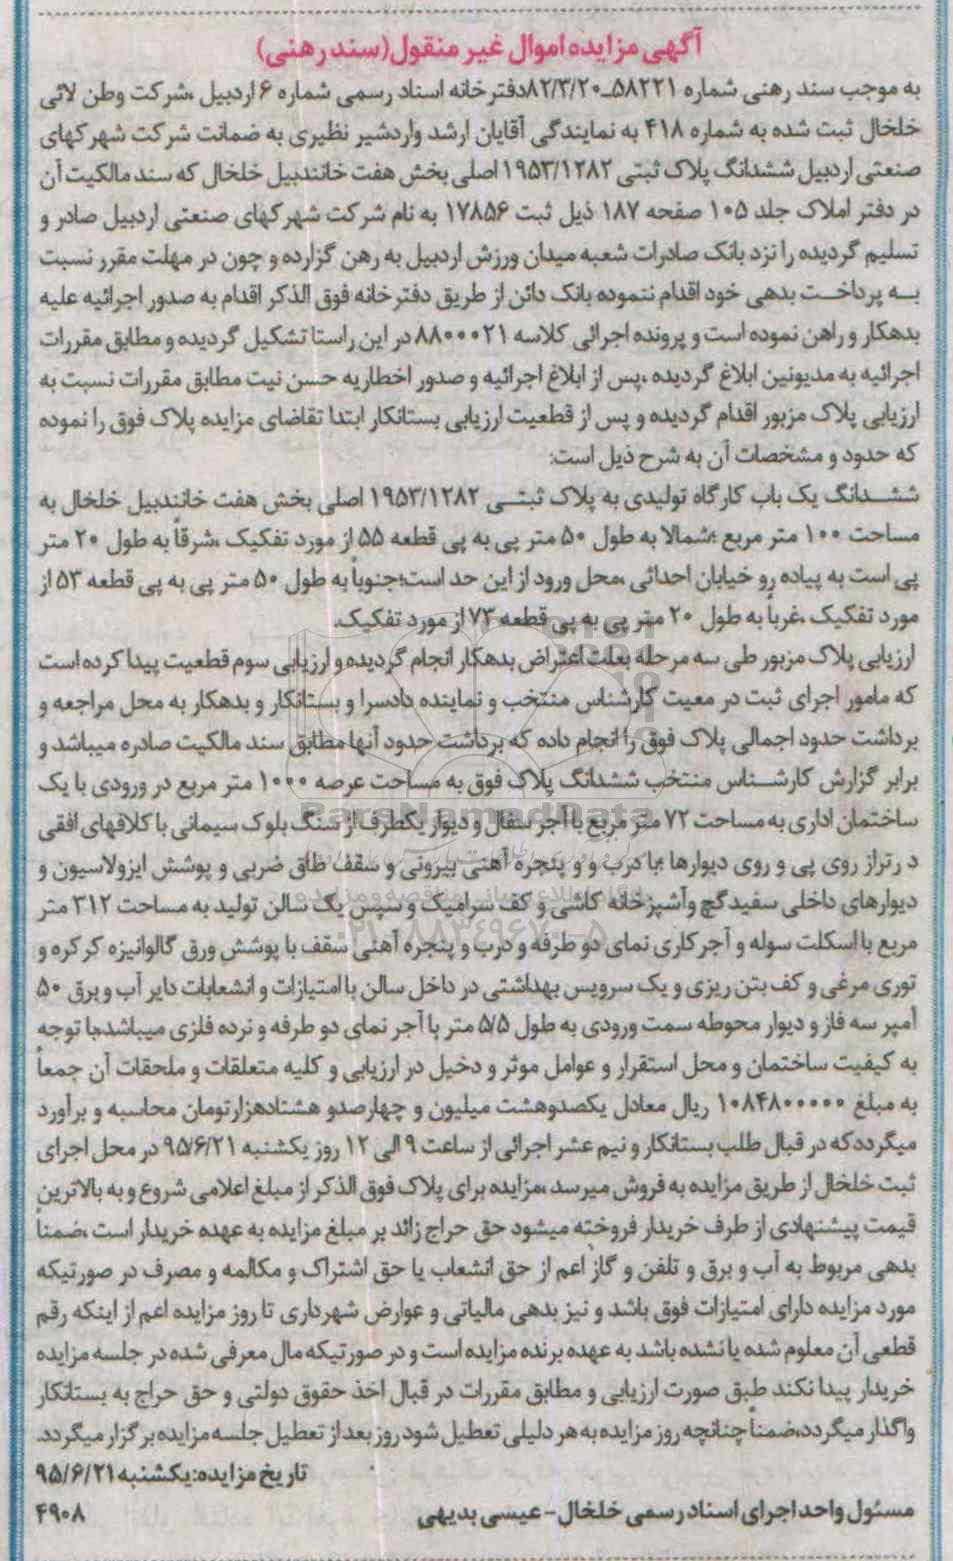 آگهی مزایده اموال غیر منقول(سند رهنی)
به موجب سند رهنی شماره ۵۸۲۲۱ـ۸۲/۳/۲۰دفترخانه اسناد رسمی شماره ۶ اردبیل ،شرکت وطن لائی
خلخال ثبت شده به شماره ۴۱۸ به نمایندگی آقایان ارشد واردشیر نظیری به ضمانت شرکت شهرکهای
صنعتی اردبیل ششدانگ پلاک ثبتی ۱۹۵۳/۱۲۸۲ اصلی بخش هفت خانندبیل خلخال که سند مالکیت آن
در دفتر املاک جلد ۱۰۵ صفحه ۱۸۷ ذیل ثبت ۱۷۸۵۶ به نام شرکت شهرکهای صنعتی اردبیل صادر و
تسلیم گردیده را نزد بانک صادرات شعبه میدان ورزش اردبیل به رهن گزارده و چون در مهلت مقرر نسبت
بـه پرداخـت بدهی خود اقدام ننموده بانک دائن از طریق دفترخانه فوق الذکر اقدام به صدور اجرائیه علیه
بدهکار و راهن نموده است و پرونده اجرائی کلاسه ۸۸۰۰۰۲۱ در این راستا تشکیل گردیده و مطابق مقررات
اجرائیه به مدیونین ابلاغ گردیده ،پس از ابلاغ اجرائیه و صدور اخطاریه حسن نیت مطابق مقررات نسبت به
ارزیابی پلاک مزبور اقدام گردیده و پس از قطعیت ارزیابی بستانکار ابتدا تقاضای مزایده پلاک فوق را نموده
که حدود و مشخصات آن به شرح ذیل است:
ششـدانگ یک باب کارگاه تولیدی به پلاک ثبتـی ۱۹۵۳/۱۲۸۲ اصلی بخش هفت خانندبیل خلخال به
مساحت ۱۰۰ متر مربع ؛شمالا به طول ۵۰ متر پی به پی قطعه ۵۵ از مورد تفکیک ،شرقاً به طول ۲۰ متر
پی است به پیاده رو خیابان احداثی ،محل ورود از این حد است؛جنوباً به طول ۵۰ متر پی به پی قطعه ۵۳ از
مورد تفکیک ،غرباً به طول ۲۰ متر پی به پی قطعه ۷۳ از مورد تفکیک.
ارزیابی پلاک مزبور طی سه مرحله بعلت اعتراض بدهکار انجام گردیده و ارزیابی سوم قطعیت پیدا کرده است
که مامور اجرای ثبت در معیت کارشناس منتخب و نماینده دادسرا و بستانکار و بدهکار به محل مراجعه و
برداشت حدود اجمالی پلاک فوق را انجام داده که برداشت حدود آنها مطابق سند مالکیت صادره میباشد و
برابر گزارش کارشـناس منتخب ششدانگ پلاک فوق به مساحت عرصه ۱۰۰۰ متر مربع در ورودی با یک
ساختمان اداری به مساحت ۷۲ متر مربع با آجر سفال و دیوار یکطرف از سنگ بلوک سیمانی با کلافهای افقی
د رتراز روی پی و روی دیوارها ،با درب و و پنجره آهنی بیرونی و سقف طاق ضربی و پوشش ایزولاسیون و
دیوارهای داخلی سفید گچ وآشپزخانه کاشی و کف سرامیک و سپس یک سالن تولید به مساحت ۳۱۲ متر
مربع با اسکلت سوله و آجر کاری نمای دو طرفه و درب و پنجره آهنی سقف با پوشش ورق گالوانیزه کرکره و
توری مرغی و کف بتن ریزی و یک سرویس بهداشتی در داخل سالن با امتیازات و انشعابات دایر آب و برق ۵۰
آمپر سه فاز و دیوار محوطه سمت ورودی به طول ۵/۵ متر با آجر نمای دو طرفه و نرده فلزی میباشد.با توجه
به کیفیت ساختمان و محل استقرار و عوامل موثر و دخیل در ارزیابی و کلیه متعلقات و ملحقات آن جمعاً
به مبلغ ۱۰۸۴۸۰۰۰۰۰ ریال معادل یکصدوهشت میلیون و چهارصدو هشتادهزارتومان محاسبه و برآورد
میگردد که در قبال طلب بستانکار و نیم عشر اجرائی از ساعت ۹ الی ۱۲ روز یکشنبه ۹۵/۶/۲۱ در محل اجرای
ثبت خلخال از طریق مزایده به فروش میرسد ،مزایده برای پلاک فوق الذکر از مبلغ اعلامی شروع و به بالاترین
قیمت پیشنهادی از طرف خریدار فروخته میشود حق حراج زائد بر مبلغ مزایده به عهده خریدار است ،ضمناً
بدهی مربوط به آب و برق و تلفن و گاز اعم از حق انشعاب یا حق اشتراک و مکالمه و مصرف در صورتیکه
مورد مزایده دارای امتیازات فوق باشد و نیز بدهی مالیاتی و عوارض شهرداری تا روز مزایده اعم از اینکه رقم
قطعی آن معلوم شده یا نشده باشد به عهده برنده مزایده است و در صورتیکه مال معرفی شده در جلسه مزایده
خریدار پیدا نکند طبق صورت ارزیابی و مطابق مقررات در قبال اخذ حقوق دولتی و حق حراج به بستانکار
واگذار میگردد،ضمناً چنانچه روز مزایده به هر دلیلی تعطیل شود روز بعد از تعطیل جلسه مزایده برگزار میگردد.
تاریخ مزایده:یکشنبه ۹۵/۶/۲۱
مسئول واحد اجرای اسناد رسمی خلخال-عیسی بدیهی
۴۹۰۸
ParsNamadData
۰۲۱-۸۸۳۴۹۶۷۰-۵